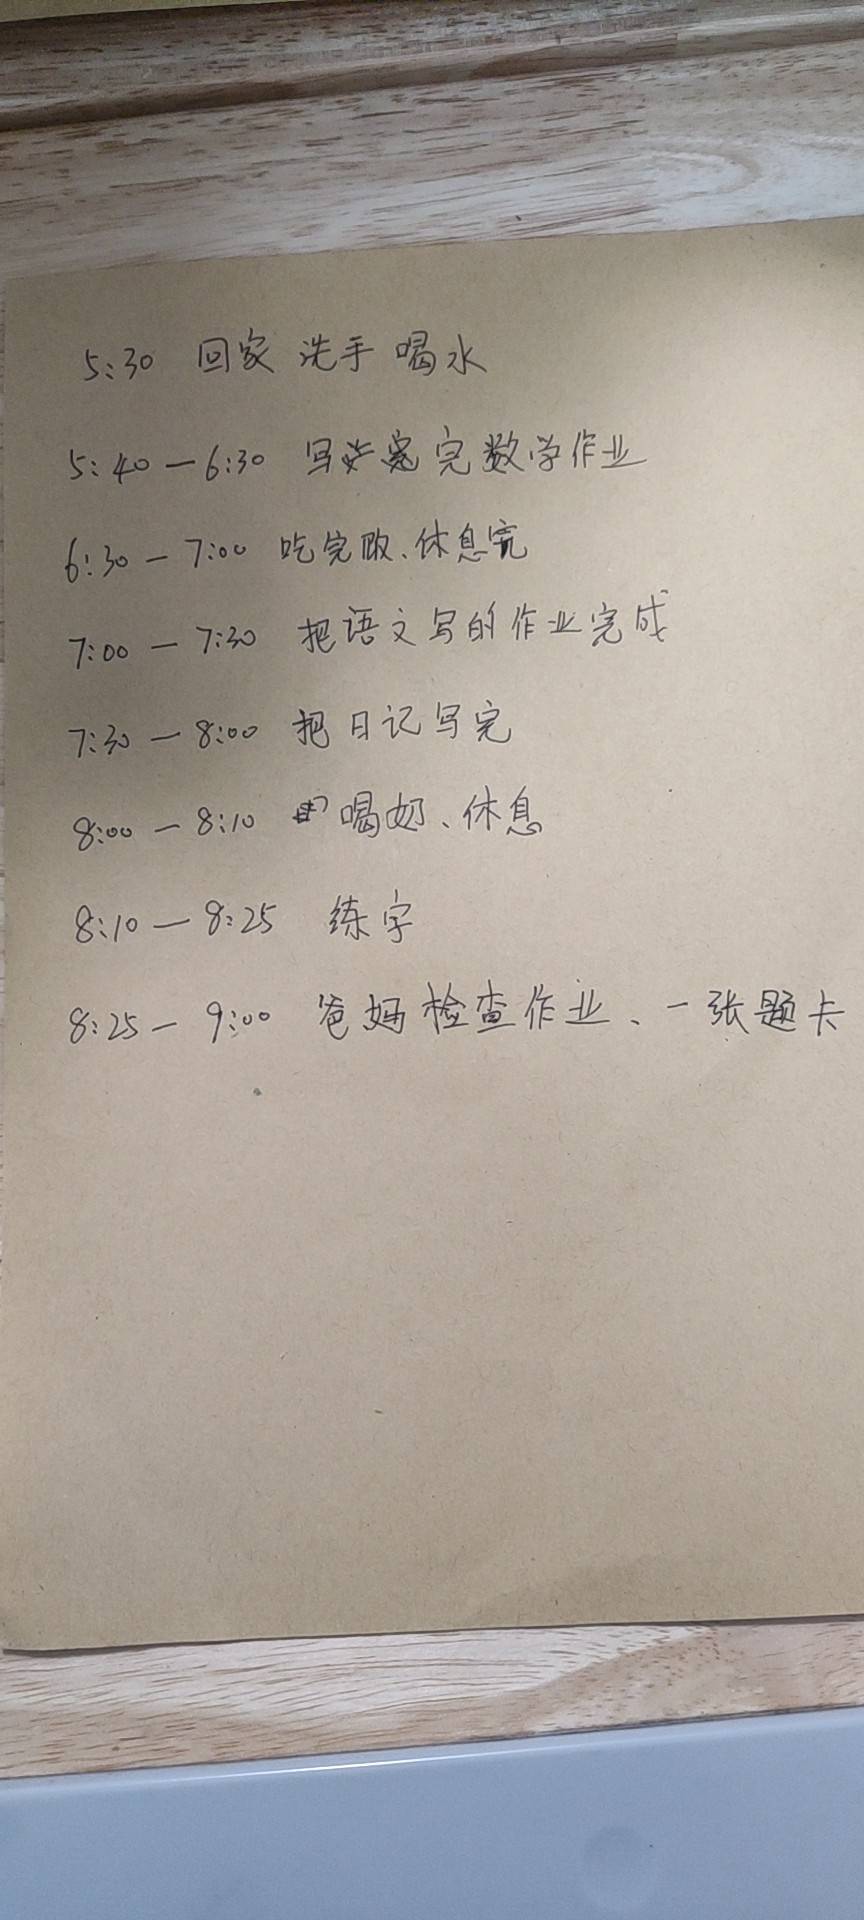 5:30 回家 洗手 喝水
5:40 — 6:30 写完数学作业
6:30 — 7:00 吃完饭、休息完
7:00 — 7:30 把语文写的作业完成
7:30 — 8:00 把日记写完
8:00 — 8:10 喝奶、休息
8:10 — 8:25 练字
8:25 — 9:00 爸妈检查作业、一张题卡